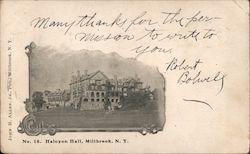 Many thanks for the per-
mission to write to
you.
Robert
Bolwell
No. 16. Halcyon Hall, Millbrook, N. Y.
John H. Allen, Jr., Pub., Millbrook, N. Y.